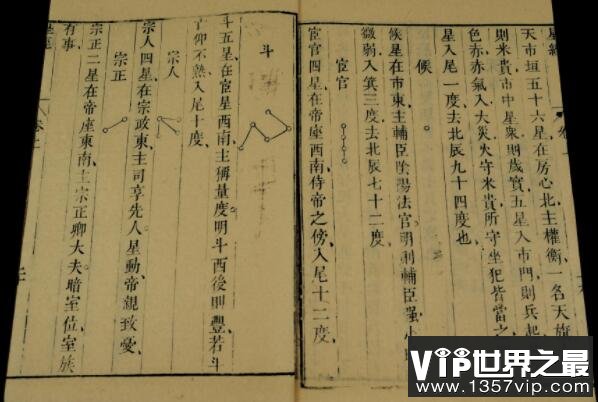 星經
天市垣五十六星在房心北主權衡一名天旗
則米貴市中星衆則歲實五星入市門則兵起
色赤赤氣入大災火守米貴所守坐犯皆當之
星入尾一度去北辰九十四度也
候
候星在市東主輔臣陰陽法官明則輔臣强小
微弱入箕三度去北辰七十二度
宦官
宦官四星在帝座西南侍帝之傍入尾十二度
斗
斗五星在宦星西南主稱量度明斗西後則豐若斗
仰不熟入尾十度
宗人
宗人四星在宗政東主司享先人星動帝親致憂
宗正
宗正二星在帝座東南主宗正卿大夫暗室位室族
有事
卷上
VIP世界之最
www.1357vip.com